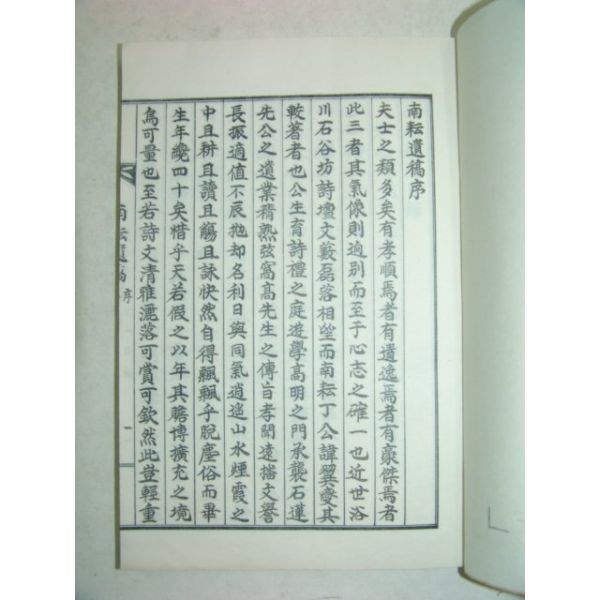 南耘遺稿序
夫士之類多矣有孝順焉者有遺逸焉者有豪傑焉者
此三者其氣像則逈別而至于心志之確一也近世浴
川石谷坊詩壇文藪磊落相望而南耘丁公諱翼燮其
較著者也公生育詩禮之庭遊學高明之門承襲石蓮
先公之遺業精熟弦窩高先生之傳旨孝聞遠播文譽
長振適值不辰抛却名利日與同氣逍遙山水煙霞之
中且耕且讀且觴且詠快然自得飄飄乎脫塵俗而畢
生年纔四十矣惜乎天若假之以年其賅博擴充之境
為可量也至若詩文清雅灑落可賞可欽然此豈輕重
南耘遺稿 序 一